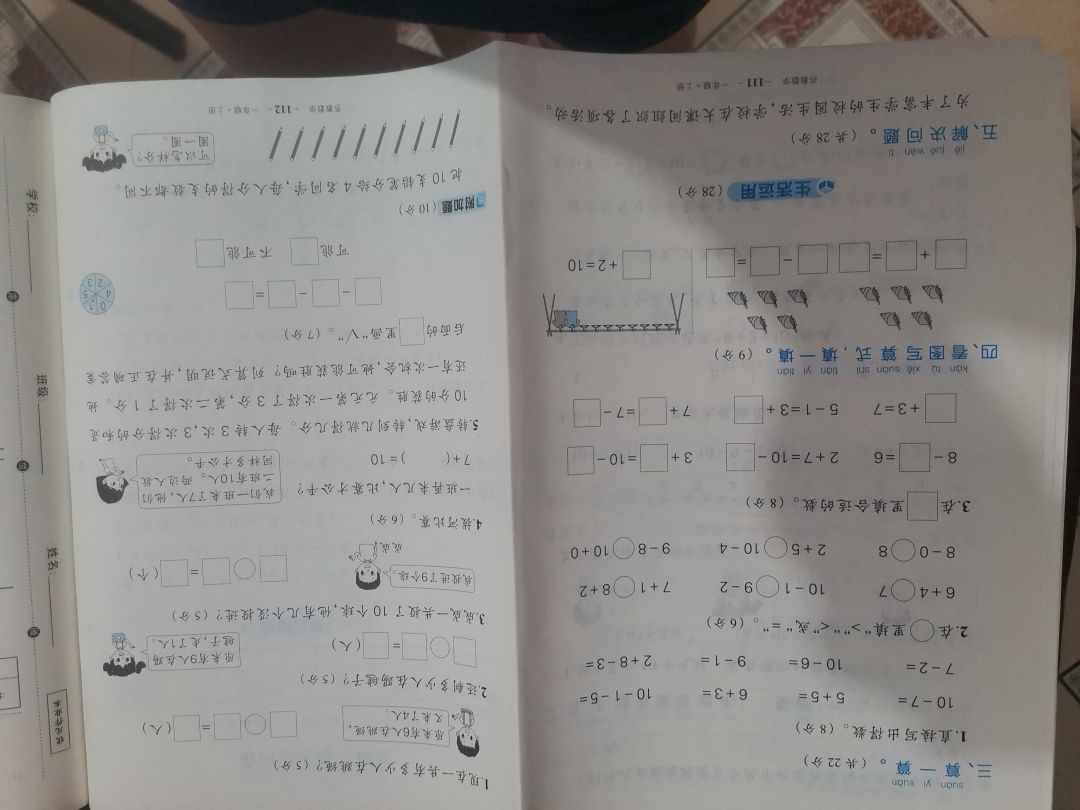 suàn yi suàn
三、算一算。（共22分）
1.直接写出得数。（8分）
10－7＝ 5＋5＝ 6＋3＝ 10－1－5＝
7－2＝ 10－6＝ 9－1＝ 2＋8－3＝
2.在○里填“＞”“＜”或“＝”。（6分）
6＋4○7 10－1○9－2 7＋1○8＋2
8－0○8 2＋5○10－4 9－8○10＋0
3.在□里填合适的数。（8分）
8－□＝6 2＋7＝10－□ 3＋□＝10－□
□＋3＝7 5－1＝3＋□ 7＋□＝7－□
kàn tú xiě suàn shì tián yi tián
四、看图写算式，填一填。（9分）
□＋□＝□ □－□＝□ □＋2＝10
生活运用（28分）
jiě jué wèn tí
五、解决问题。（共28分）
为了丰富学生的校园生活，学校在大课间组织了各项活动。
苏教数学 － 111 － 一年级·上册
1.现在一共有多少人在跳绳？（5分）
原来有6人在跳绳，
又来了4人。
□○□＝□（人）
2.还剩多少人在踢毽子？（5分）
原来有9人在踢
毽子，走了1人。
□○□＝□（人）
3.成成一共投了10个球，他有几个没投进？（5分）
我投进了9个球。
成成
□○□＝□（个）
4.拔河比赛。（6分）
一班再来几人，比赛才公平？
7＋（ ）＝10
我们一班来了7人，他们
二班有10人。两边人数
同样多才公平。
5.转盘游戏，转到几就得几分。每人转3次，3次得分的和是
10分的获胜。元元第一次得了3分，第二次得了1分。她
还有一次机会，她可能获胜吗？列算式说明，并在正确答案
后面的□里画“√”。（7分）
□－□－□＝□
可能□ 不可能□
0 1 2 3 4 5
附加题（10分）
把10支铅笔分给4名同学，每人分得的支数都不同。
可以怎样分？
圈一圈。
苏教数学 － 112 － 一年级·上册
学校：
班级：
姓名：
状元作业本